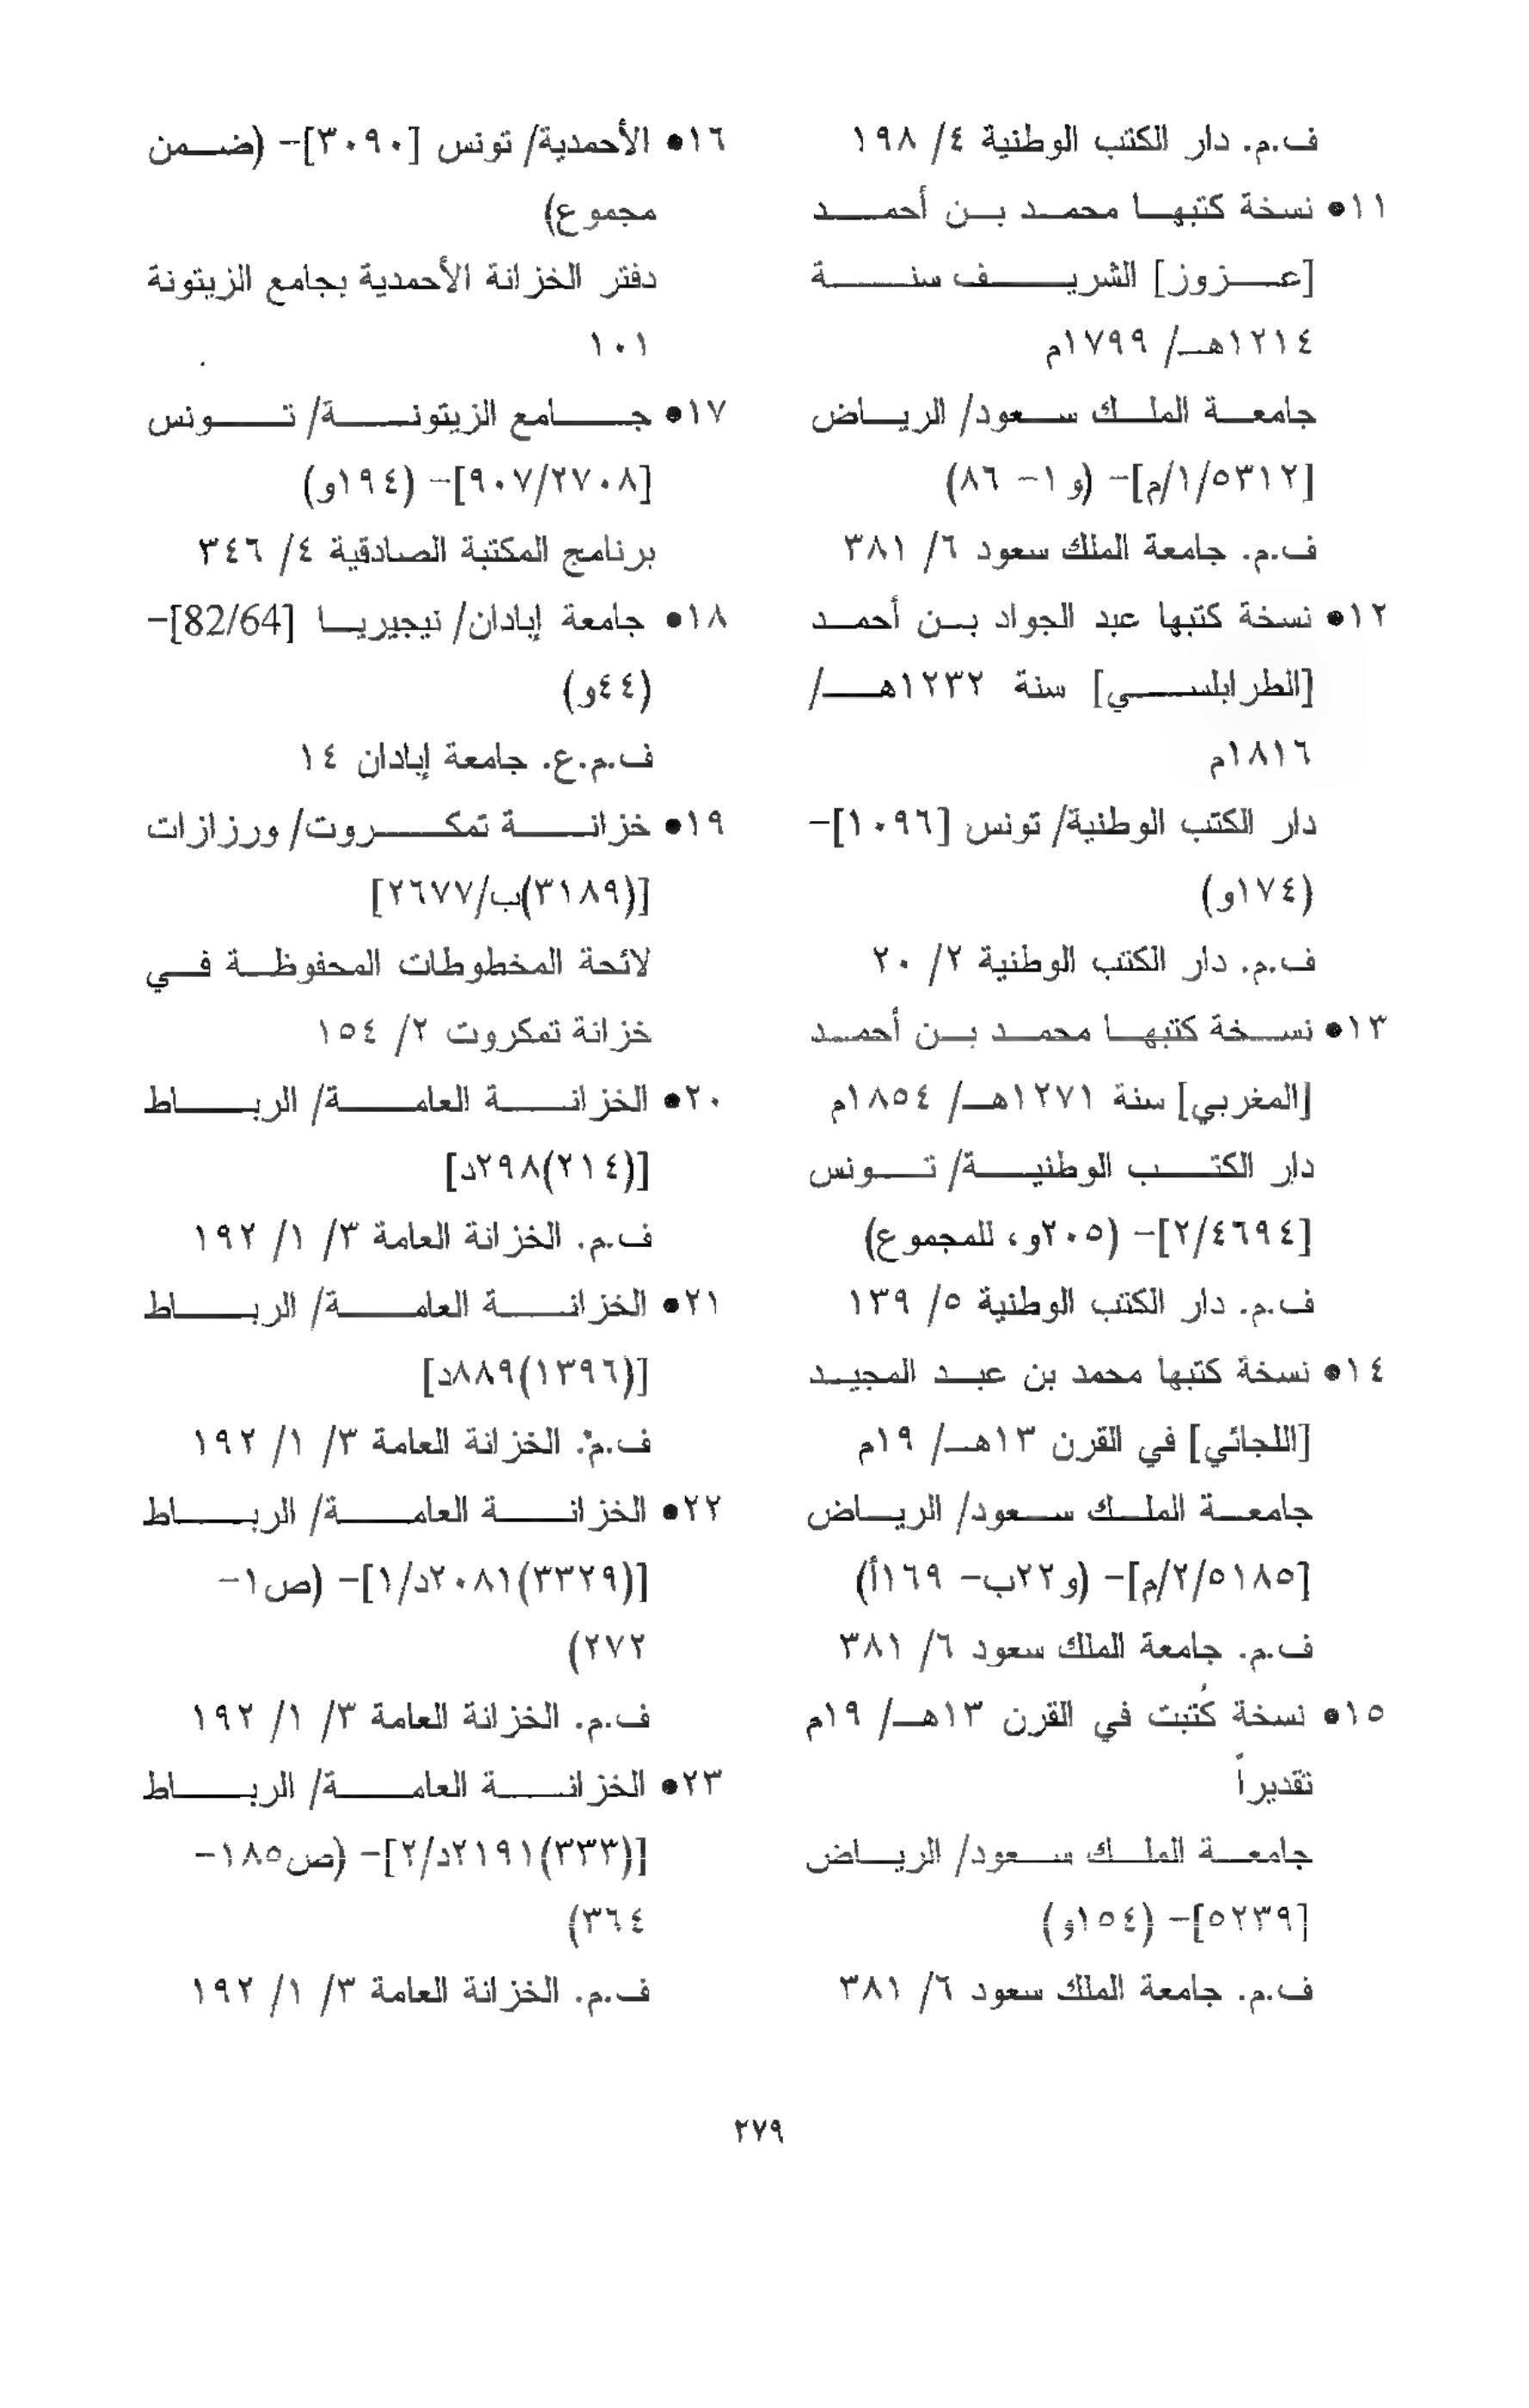 ف.م. دار الكتب الوطنية ٤/ ١٩٨
١١● نسخة كتبها محمد بن أحمد
[عزوز] الشريف سنة
١٢١٤هـ/ ١٧٩٩م
جامعة الملك سعود/ الرياض
[٥٣١٢/١/م]- (و١- ٨٦)
ف.م. جامعة الملك سعود ٦/ ٣٨١
١٢● نسخة كتبها عبد الجواد بن أحمد
[الطرابلسي] سنة ١٢٣٢هـ/
١٨١٦م
دار الكتب الوطنية/ تونس [١٠٩٦]-
(١٧٤و)
ف.م. دار الكتب الوطنية ٢/ ٢٠
١٣● نسخة كتبها محمد بن أحمد
[المغربي] سنة ١٢٧١هـ/ ١٨٥٤م
دار الكتب الوطنية/ تونس
[٤٦٩٤/٢]- (٢٠٥و، للمجموع)
ف.م. دار الكتب الوطنية ٥/ ١٣٩
١٤● نسخة كتبها محمد بن عبد المجيد
[اللجائي] في القرن ١٣هـ/ ١٩م
جامعة الملك سعود/ الرياض
[٥١٨٥/٢/م]- (و٢٢ب- ١٦٩أ)
ف.م. جامعة الملك سعود ٦/ ٣٨١
١٥● نسخة كُتبت في القرن ١٣هـ/ ١٩م
تقديراً
جامعة الملك سعود/ الرياض
[٥٢٣٩]- (١٥٤و)
ف.م. جامعة الملك سعود ٦/ ٣٨١
١٦● الأحمدية/ تونس [٣٠٩٠]- (ضمن
مجموع)
دفتر الخزانة الأحمدية بجامع الزيتونة
١٠١
١٧● جامع الزيتونة/ تونس
[٩٠٧/٢٧٠٨]- (١٩٤و)
برنامج المكتبة الصادقية ٤/ ٣٤٦
١٨● جامعة إبادان/ نيجيريا [82/64]-
(٤٤و)
ف.م.ع. جامعة إبادان ١٤
١٩● خزانة تمكروت/ ورزازات
[(٣١٨٩)ب/٢٦٧٧]
لائحة المخطوطات المحفوظة في
خزانة تمكروت ٢/ ١٥٤
٢٠● الخزانة العامة/ الرباط
[(٢١٤)٢٩٨د]
ف.م. الخزانة العامة ٣/ ١/ ١٩٢
٢١● الخزانة العامة/ الرباط
[(١٣٩٦)٨٨٩د]
ف.م. الخزانة العامة ٣/ ١/ ١٩٢
٢٢● الخزانة العامة/ الرباط
[(٣٣٢٩)٢٠٨١د/١]- (ص١-
٢٧٢)
ف.م. الخزانة العامة ٣/ ١/ ١٩٢
٢٣● الخزانة العامة/ الرباط
[(٣٣٣)٢١٩١د/٢]- (ص١٨٥-
٣٦٤)
ف.م. الخزانة العامة ٣/ ١/ ١٩٢
٢٧٩